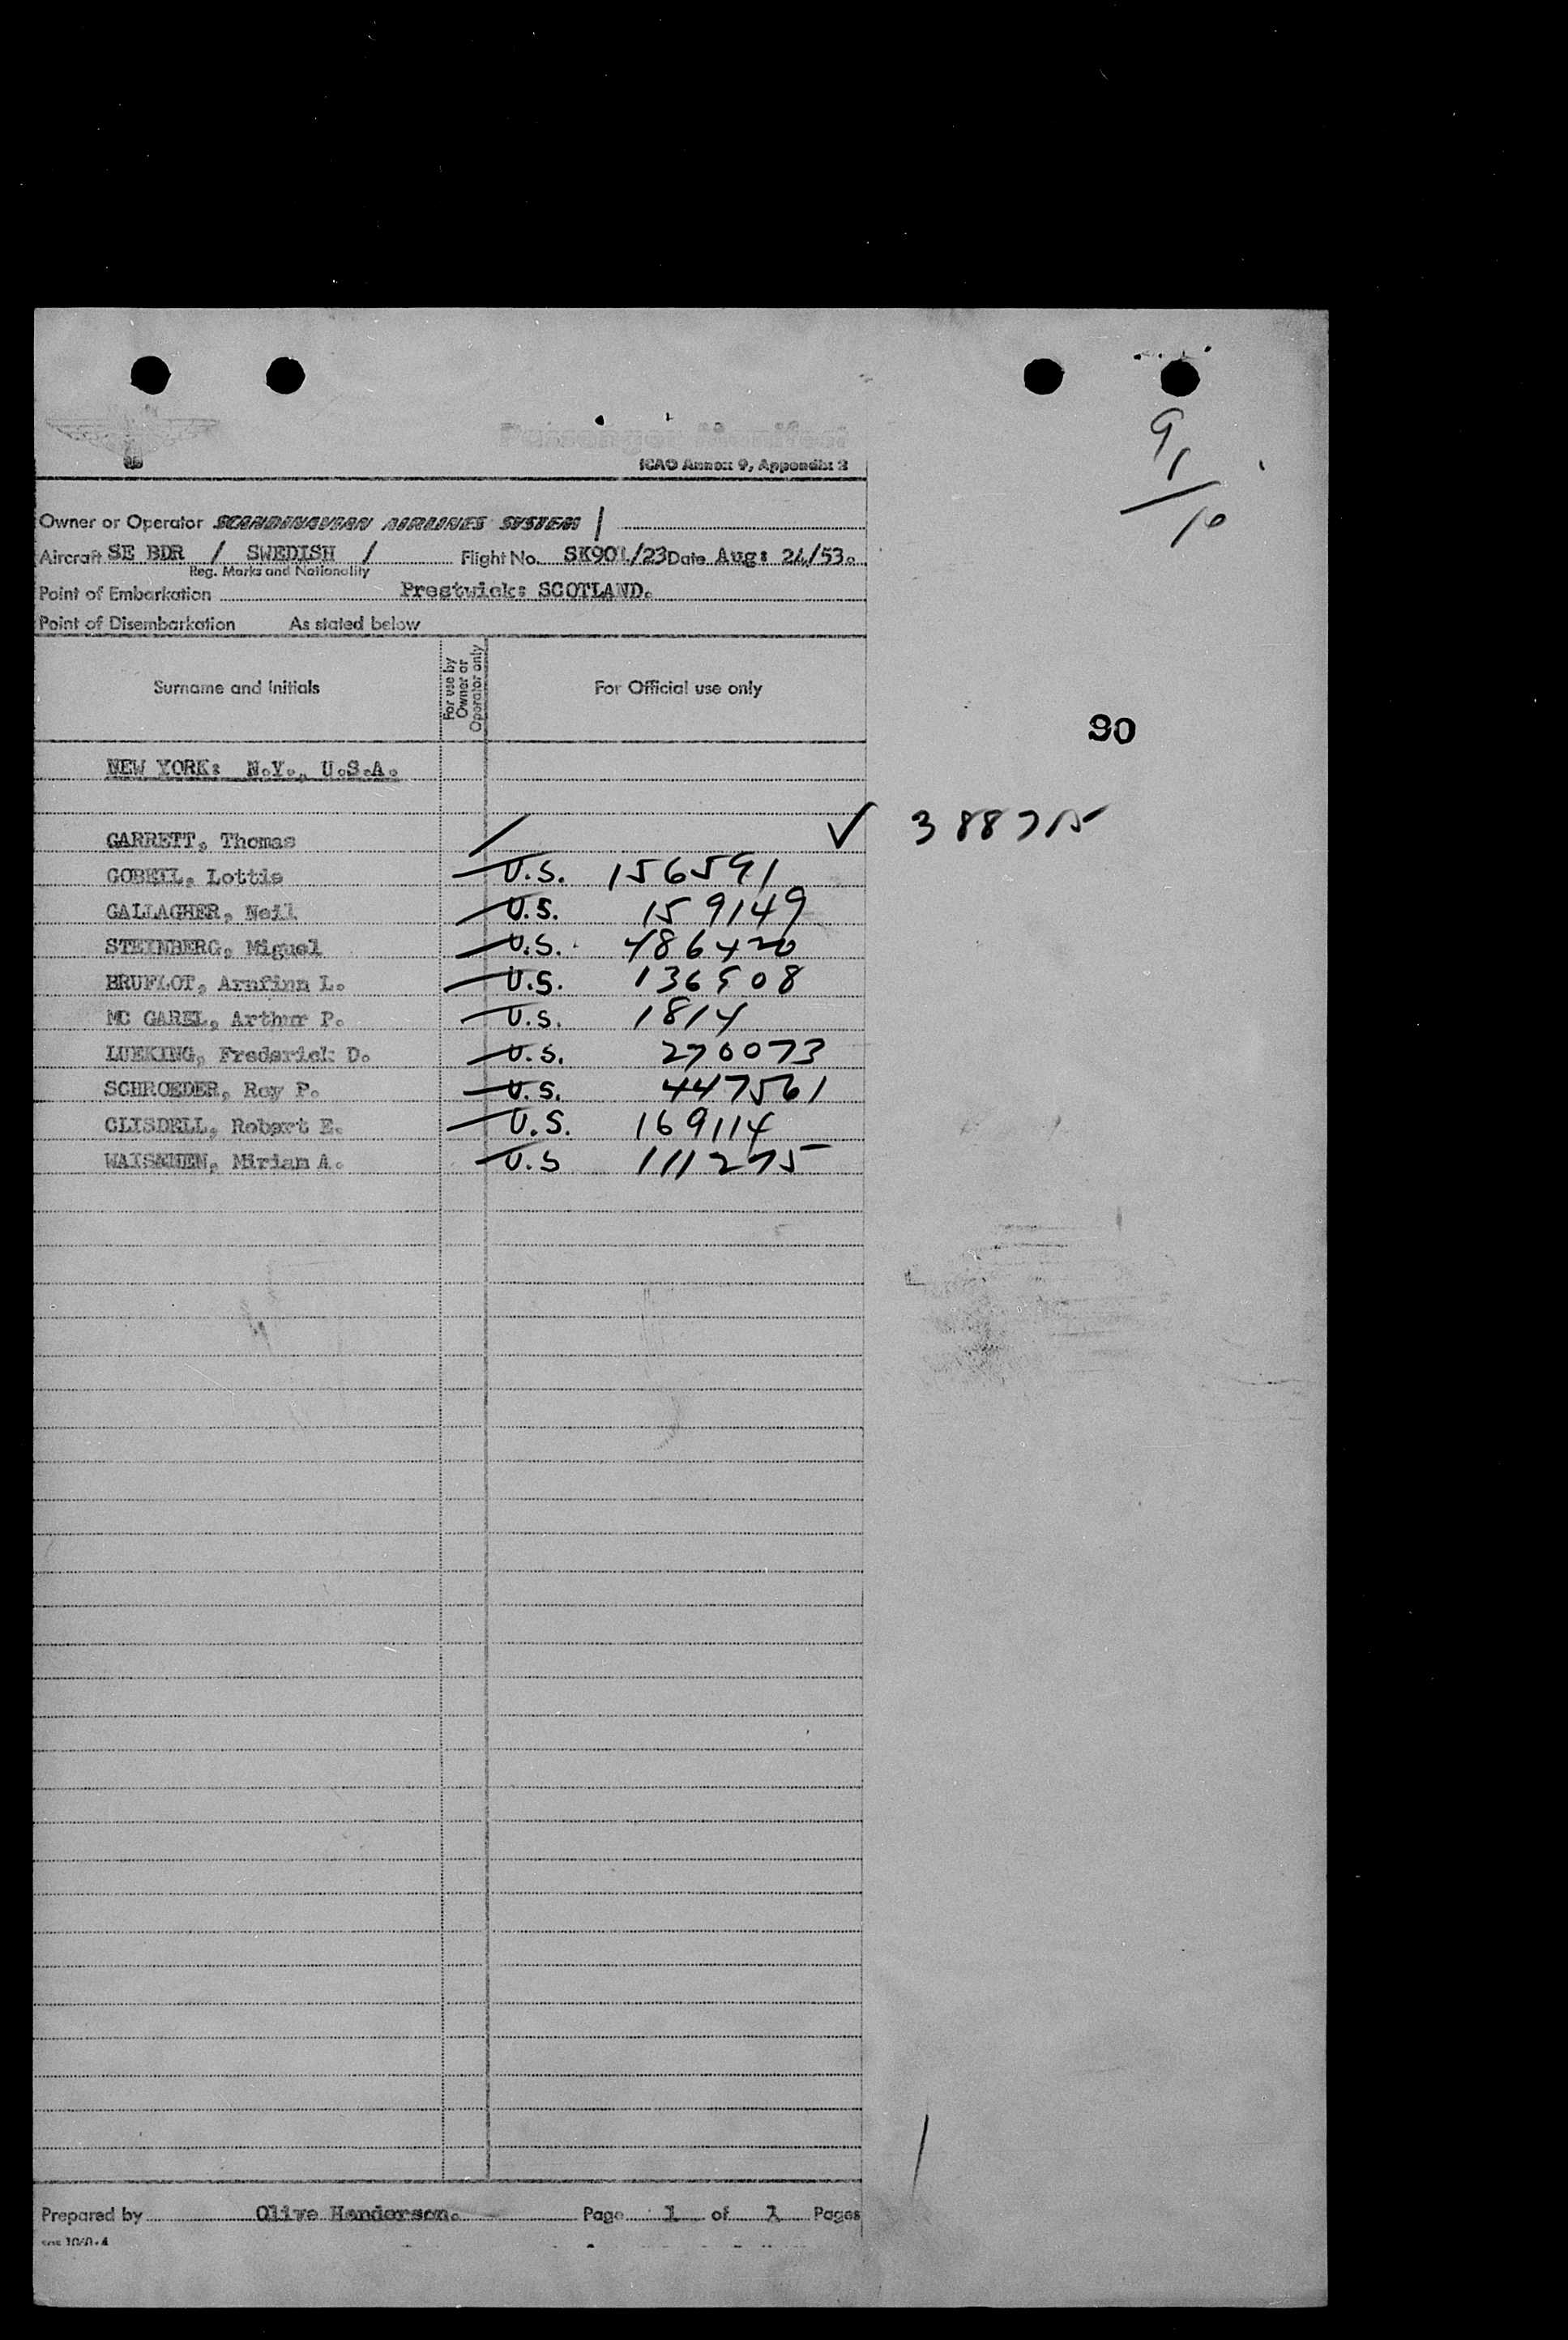 Passenger Manifest
ICAO Annex 9, Appendix 2
9
1
/10
Owner or Operator SCANDINAVIAN AIRLINES SYSTEM /
Aircraft SE BDR / SWEDISH / Flight No. SK901/23 Date Aug: 24/53.
Reg. Marks and Nationality
Point of Embarkation Prestwick: SCOTLAND.
Point of Disembarkation As stated below
Surname and Initials For use by Owner or Operator only For Official use only
90
NEW YORK: N.Y., U.S.A.
GARRETT, Thomas / ✓ 388715
GOBEIL, Lottie U.S. 156591
GALLAGHER, Neil U.S. 159149
STEINBERG, Miguel U.S. 486420
BRUFLOT, Arnfinn L. U.S. 136508
MC GAREL, Arthur P. U.S. 1814
LUEKING, Frederick D. U.S. 270073
SCHROEDER, Roy P. U.S. 447561
CLISDELL, Robert E. U.S. 169114
WAISANEN, Miriam A. U.S 111275
Prepared by Olive Henderson. Page 1 of 1 Pages